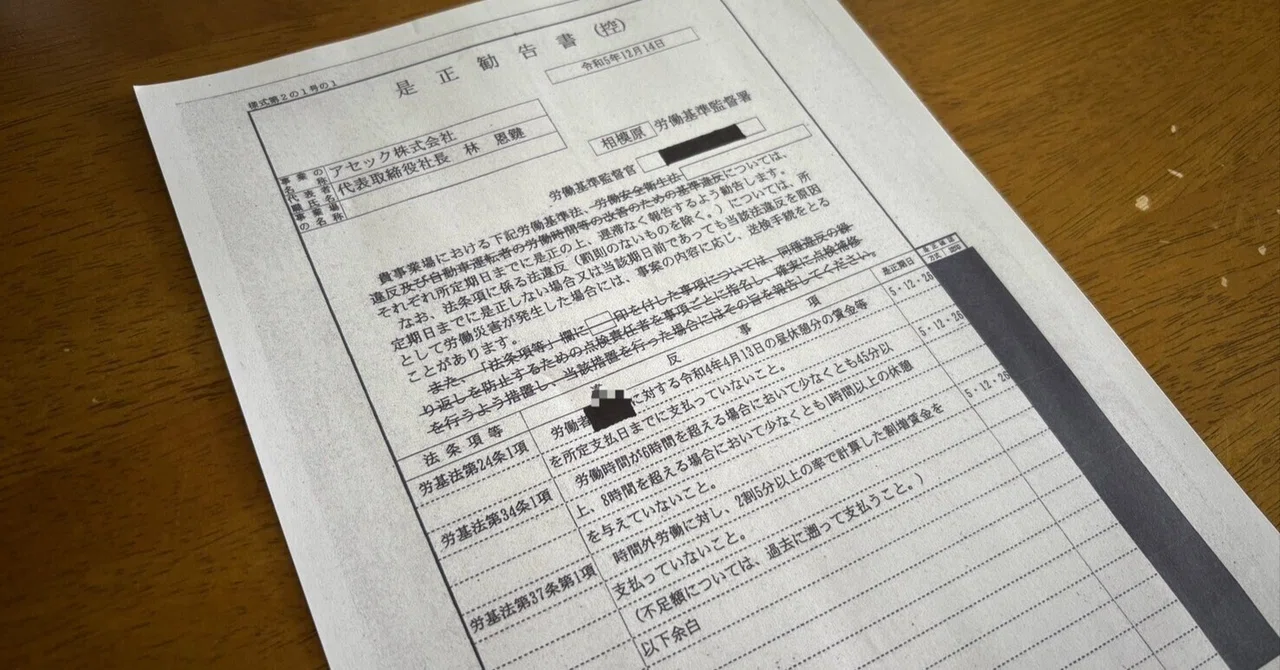 様式第2の1号の1
是正勧告書(控)
令和5年12月14日
アセック株式会社
代表取締役社長 林 恩鍵
事業の名称
代表者職氏名
事業の名称
相模原 労働基準監督署
労働基準監督官
貴事業場における下記労働基準法、労働安全衛生法
違反及び自動車運転者の労働時間等の改善のための基準違反については、
それぞれ所定期日までに是正の上、遅滞なく報告するよう勧告します。
なお、法条項に係る法違反(罰則のないものを除く。)については、所
定期日までに是正しない場合又は当該期日前であっても当該法違反を原因
として労働災害が発生した場合には、事案の内容に応じ、送検手続をとる
ことがあります。
また、「法条項等」欄に□印を付した事項については、同種違反の繰
り返しを防止するための点検責任者を事項ごとに指名し、確実に点検補修
を行うよう措置し、当該措置を行った場合にはその旨を報告してください。
法条項等 違反事項 是正期日
労基法第24条1項 労働者 に対する令和4年4月13日の昼休憩分の賃金等 5・12・26
を所定支払日までに支払っていないこと。
労基法第34条1項 労働時間が6時間を超える場合において少なくとも45分以 5・12・26
上、8時間を超える場合において少なくとも1時間以上の休憩
を与えていないこと。
労基法第37条第1項 時間外労働に対し、2割5分以上の率で計算した割増賃金を 5・12・26
支払っていないこと。
(不足額については、過去に遡って支払うこと。)
以下余白